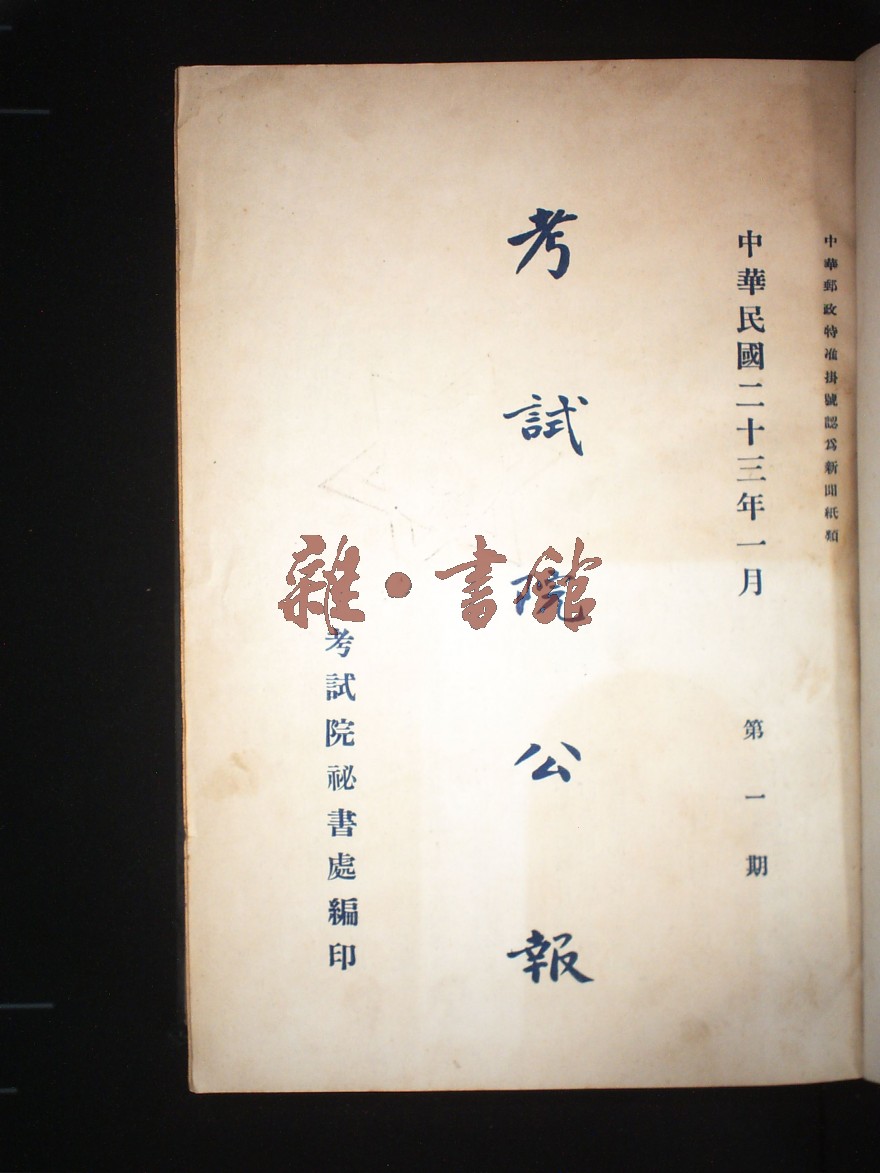 中華郵政特准掛號認爲新聞紙類
中華民國二十三年一月 第一期
考試院公報
雜·書館
考試院祕書處編印